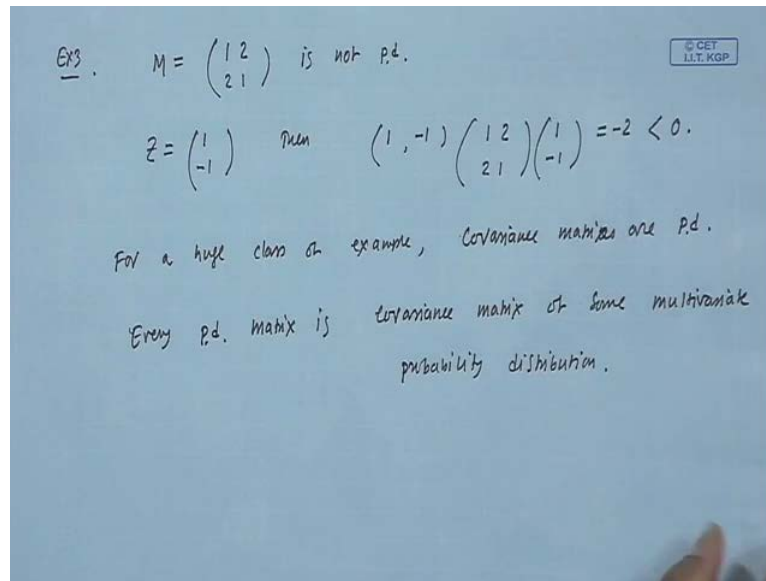 © CET
I.I.T. KGP
Ex3. M = ( 1 2 ) is not p.d.
( 2 1 )
Z = ( 1 ) Then (1, -1) ( 1 2 ) ( 1 ) = -2 < 0.
( -1 ) ( 2 1 ) ( -1 )
For a huge class of example, Covariance matrices are P.d.
Every p.d. matrix is covariance matrix of some multivariate
probability distribution.